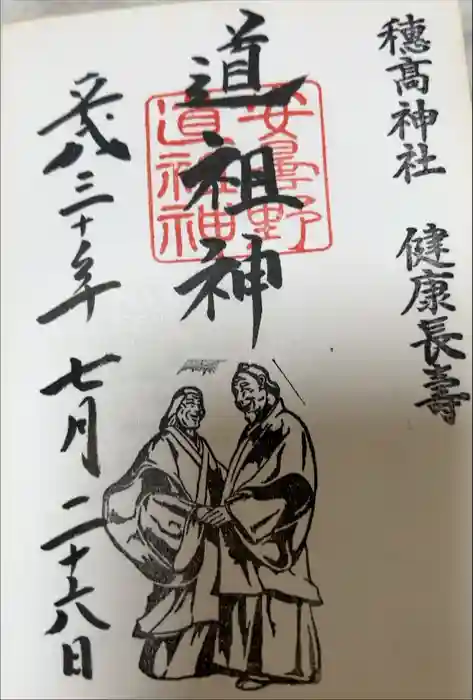 穂高神社 健康長壽
道祖神
安曇野
道祖神
平成三十年七月二十八日